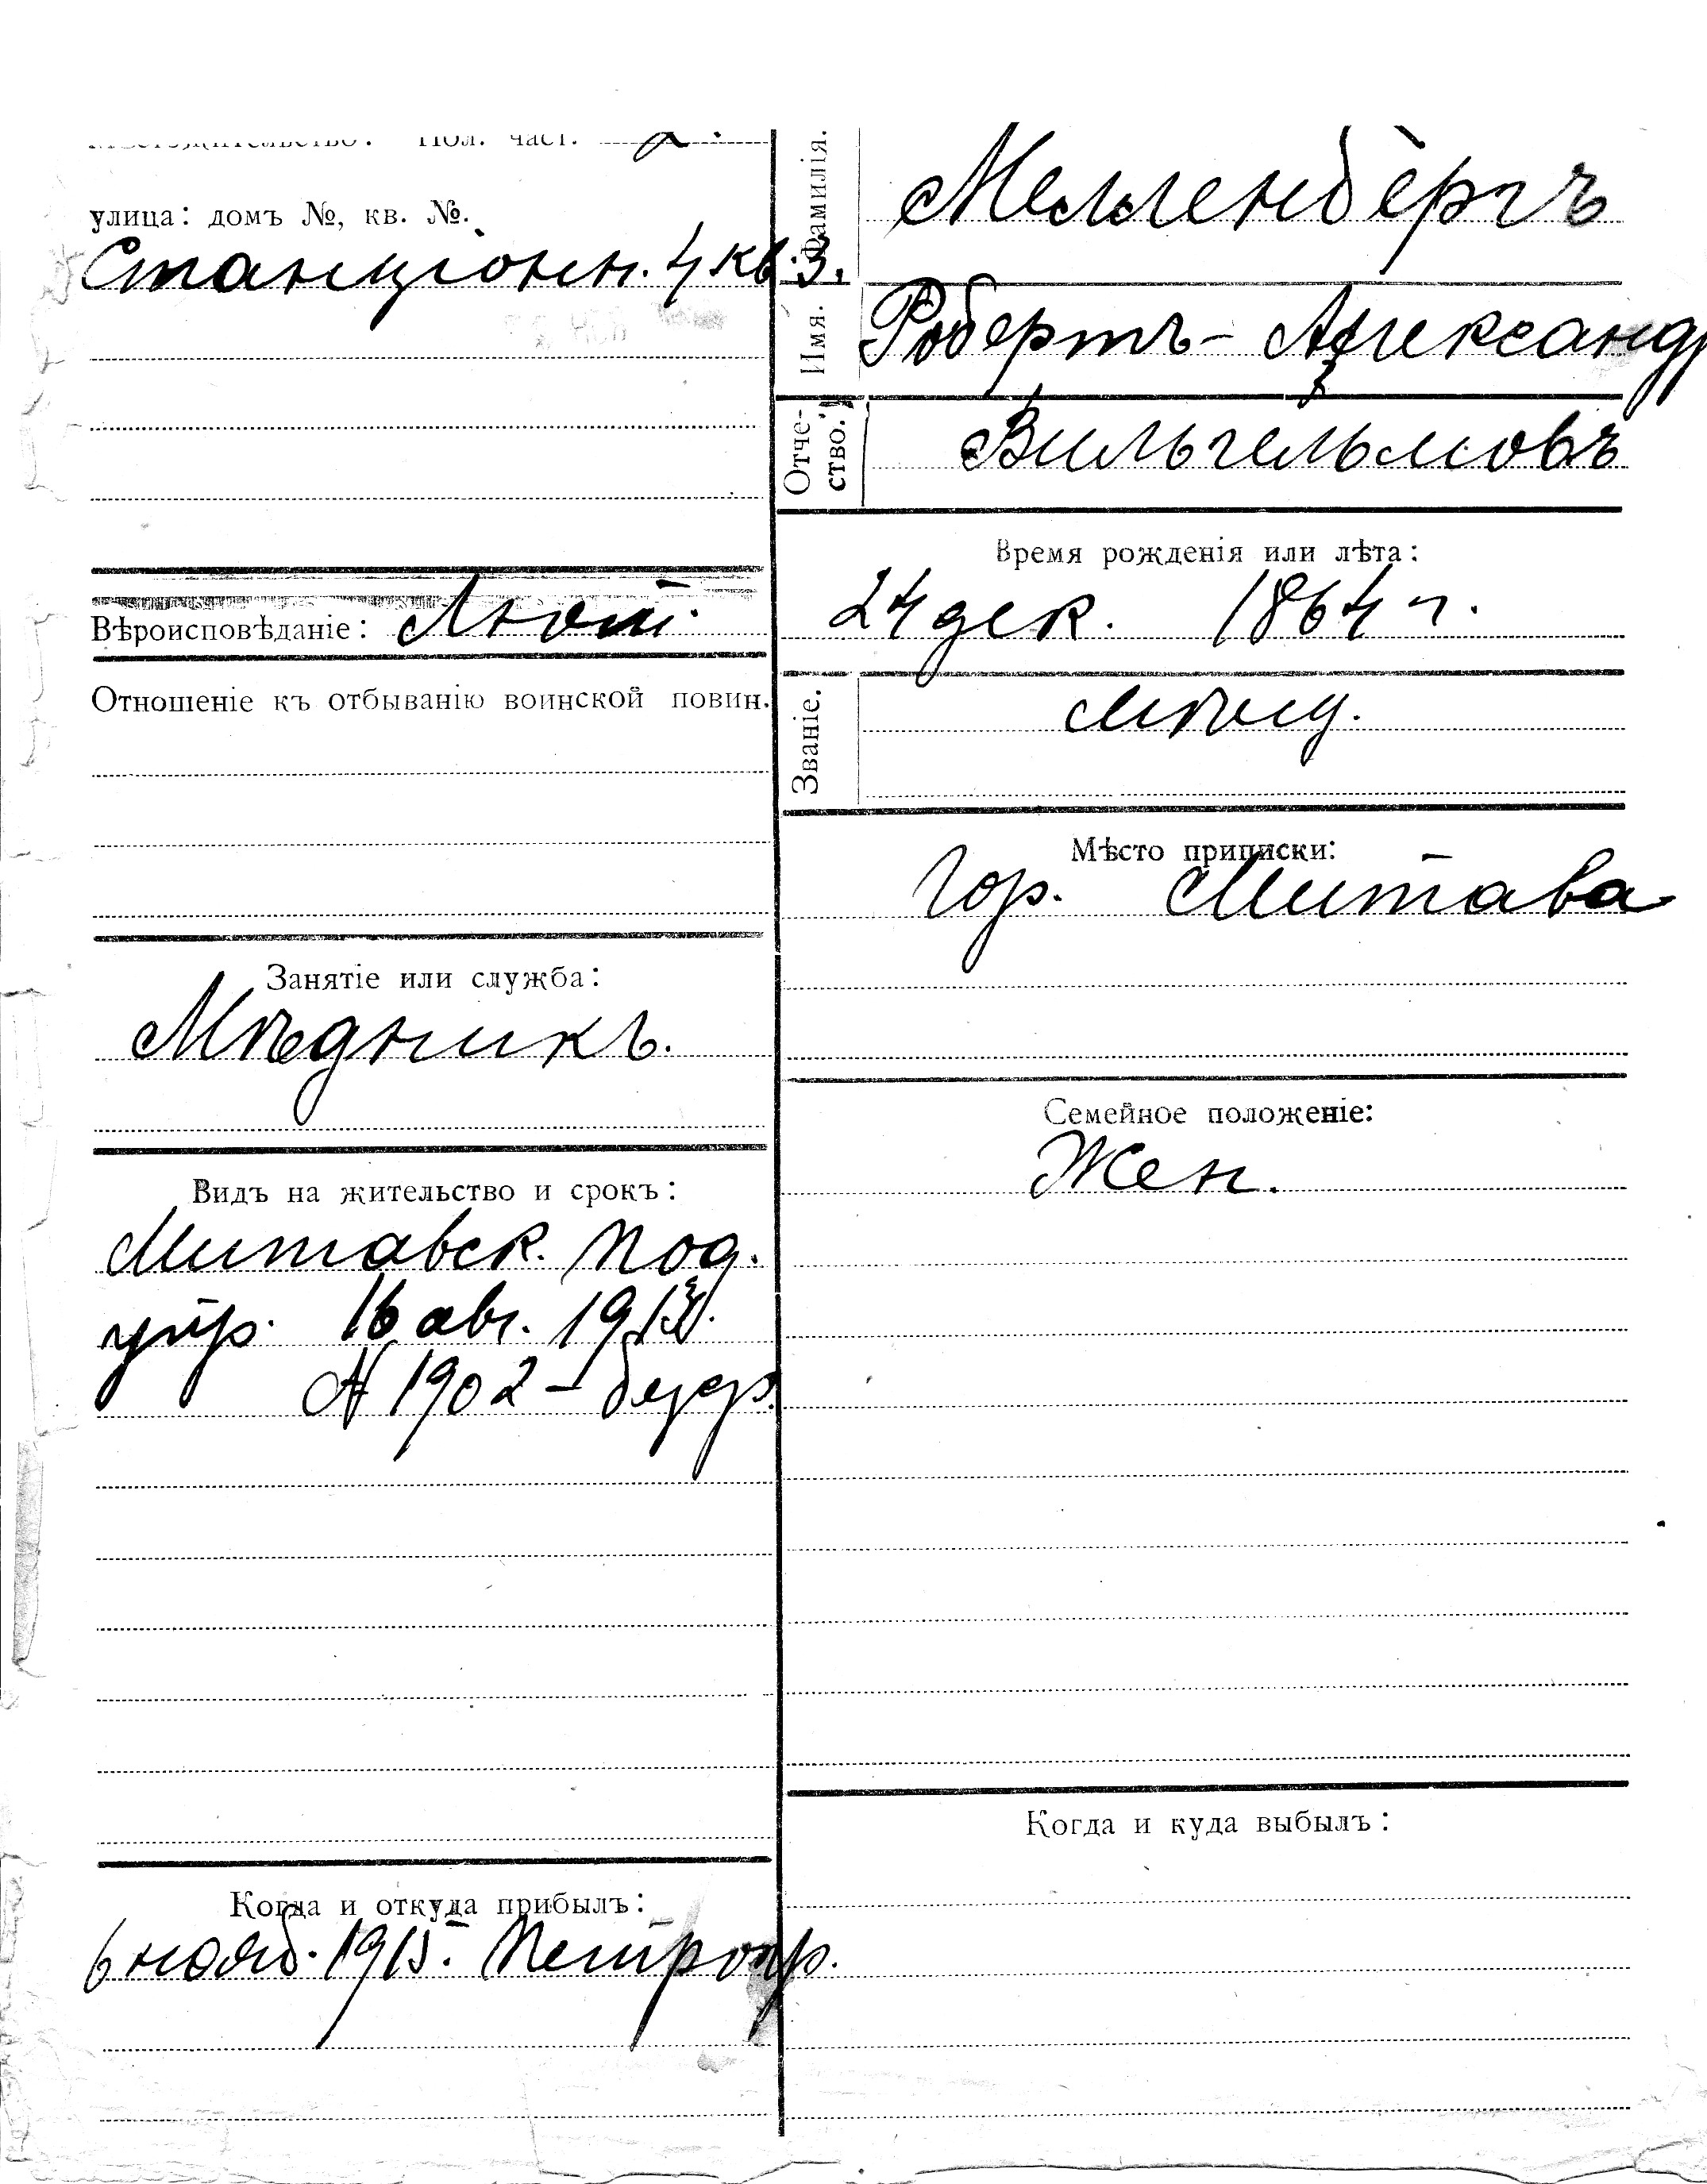 Мѣстожительство: Пол. част. 2.
улица: домъ №, кв. №.
Станціонн. 4 кв. 3.
Вѣроисповѣданіе: Лют.
Отношеніе къ отбыванію воинской повин.
Занятіе или служба:
Мѣдникъ.
Видъ на жительство и срокъ:
Митавск. под.
упр. 16 авг. 191
№ 1902 – безср.
Когда и откуда прибылъ:
6 нояб. 1915. Петрогр.
Фамилія.
Мелленбергъ
Имя.
Робертъ-Александр
Отче-
ство.
Вильгельмовъ
Время рожденія или лѣта:
24 дек. 1864 г.
Званіе.
Мѣщ.
Мѣсто приписки:
Гор. Митава
Семейное положеніе:
Жен.
Когда и куда выбылъ: